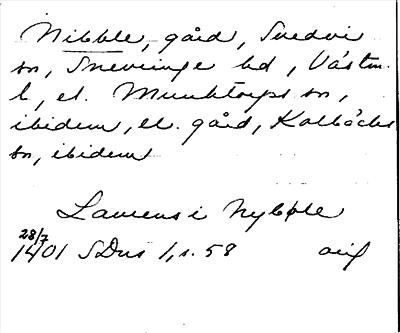 Nibble, gård, Svedvi
sn, Snevringe hd, Västm.
l, el. Munktorps sn,
ibidem, el. gård, Kolbäcks
sn, ibidem
Laurens i Nybble
28/7
1401 SDns 1, s. 58 orig